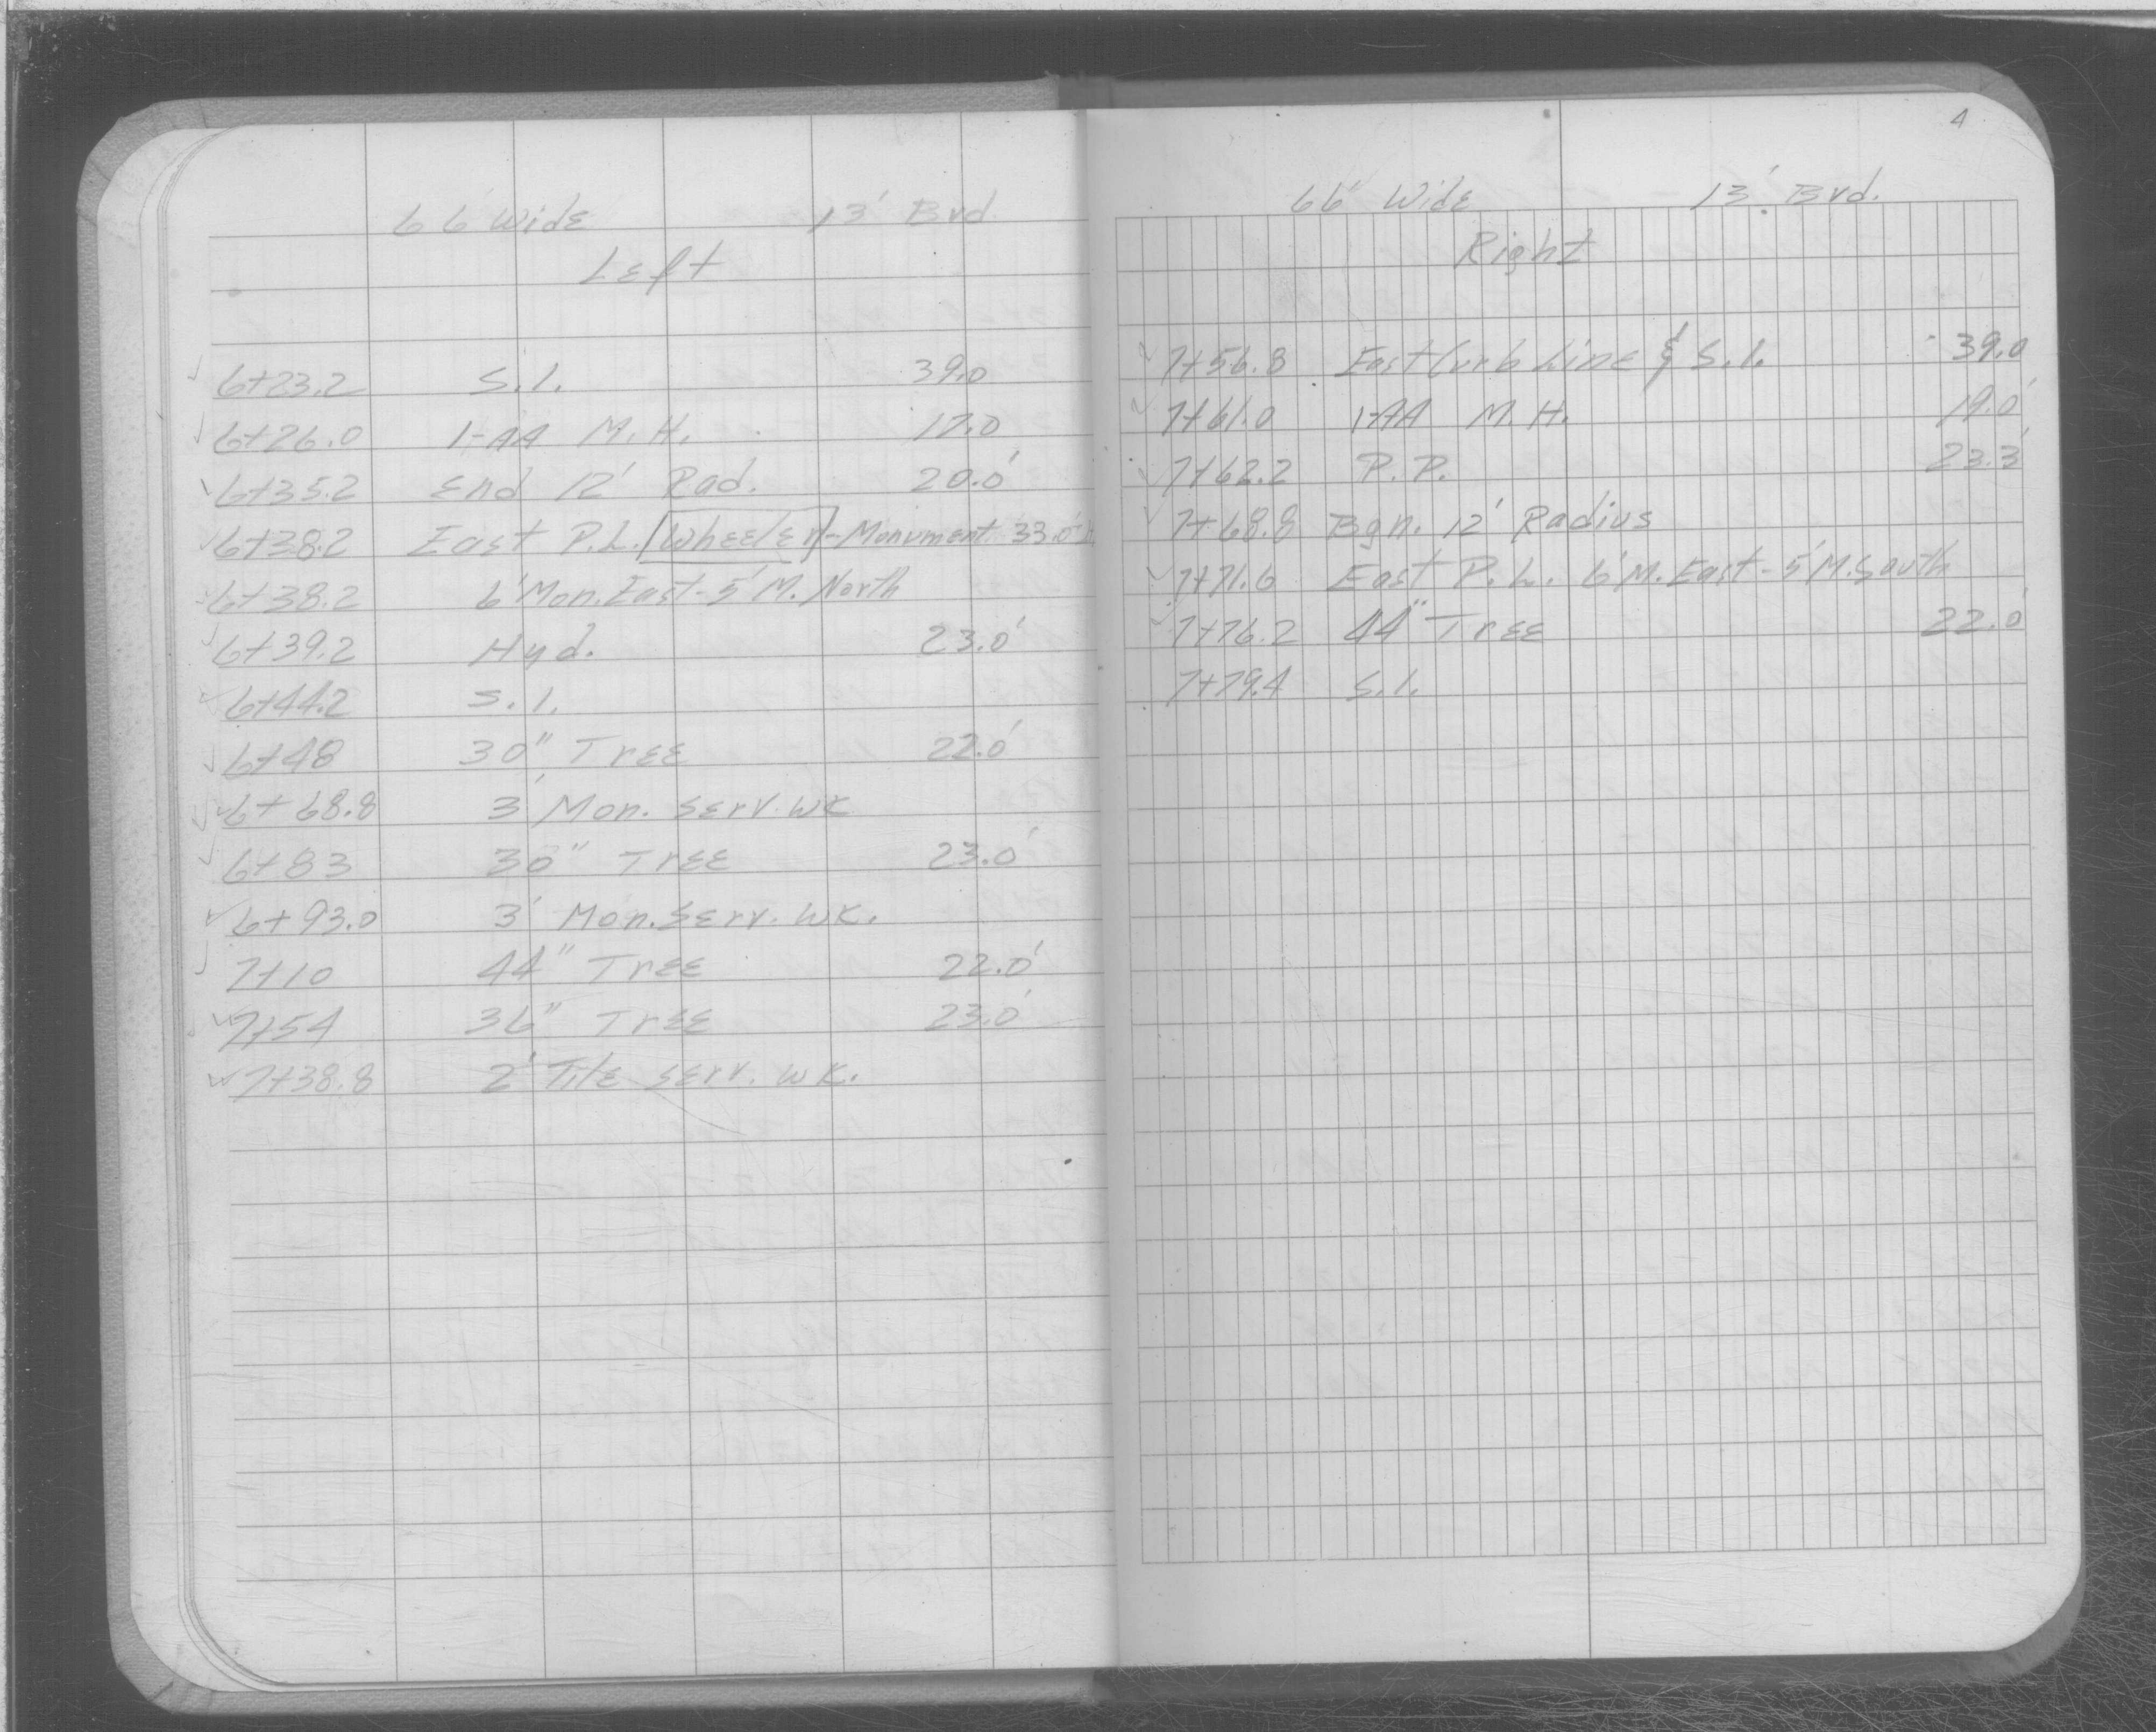 66' Wide 13' Brd
Left
6+23.2 S.I. 39.0
6+26.0 1-AA M.H. 17.0
6+35.2 End 12' Rad. 20.0'
6+38.2 East P.L. Wheeler - Monument 33.0'
6+38.2 6' Mon. East - 5' M. North
6+39.2 Hyd. 23.0'
6+44.2 S.I.
6+48 30" Tree 22.0'
6+68.8 3' Mon. Serv. Wk
6+83 30" Tree 23.0'
6+93.0 3' Mon. Serv. Wk.
7+10 44" Tree 22.0'
7+54 36" Tree 23.0'
7+38.8 2' Tile Serv. Wk.
4
66' Wide 13' Brd.
Right
7+56.8 East Curb Line & S.I. 39.0
7+61.0 1-AA M.H. 19.0'
7+62.2 P.P. 23.3'
7+68.8 Bgn. 12' Radius
7+71.6 East P.L. 6' M. East - 5' M. South
7+76.2 44" Tree 22.0'
7+79.4 S.I.